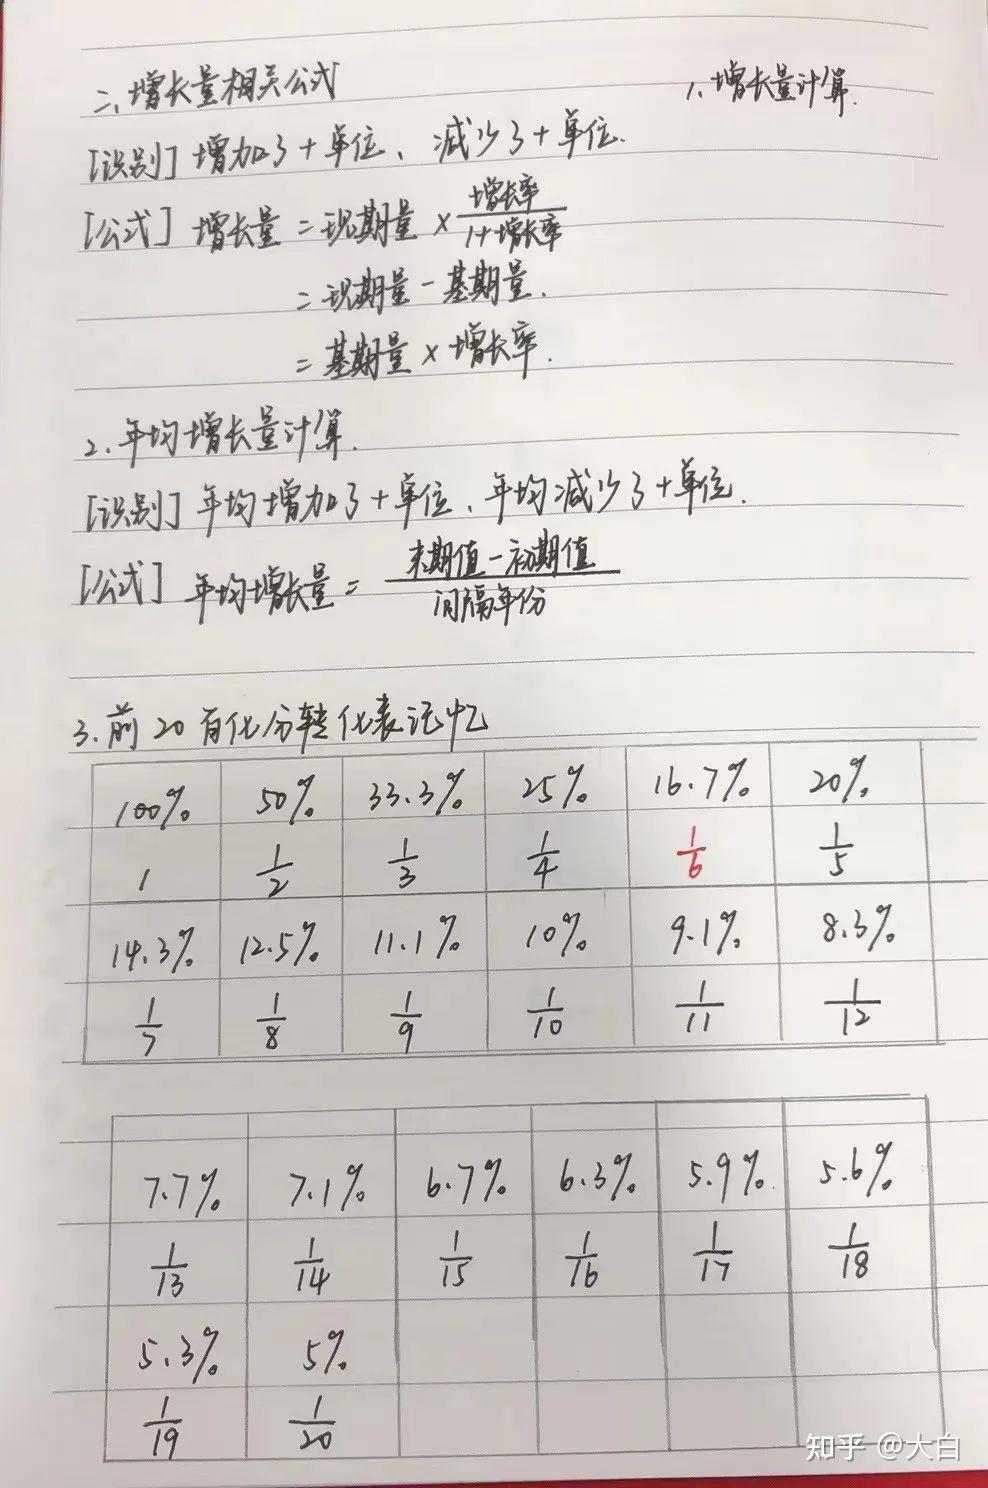 二、增长量相关公式
1、增长量计算.
[识别] 增加了+单位、减少了+单位.
[公式] 增长量=现期量×增长率/1+增长率
=现期量-基期量.
=基期量×增长率.
2、年均增长量计算.
[识别] 年均增加了+单位、年均减少了+单位.
[公式] 年均增长量=末期值-初期值/间隔年份
3.前20百化分转化表记忆
100% 50% 33.3% 25% 16.7% 20%
1 1/2 1/3 1/4 1/6 1/5
14.3% 12.5% 11.1% 10% 9.1% 8.3%
1/7 1/8 1/9 1/10 1/11 1/12
7.7% 7.1% 6.7% 6.3% 5.9% 5.6%
1/13 1/14 1/15 1/16 1/17 1/18
5.3% 5%
1/19 1/20
知乎 @大白